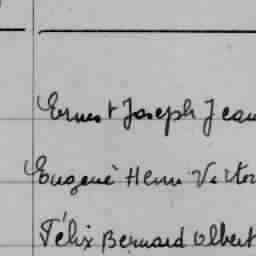 Ernest Joseph Jean
Eugène Henri Victor
Félix Bernard Albert